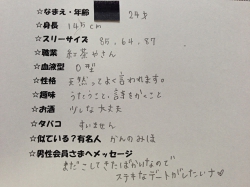 ☆なまえ・年齢 24才
☆身長 145cm
☆スリーサイズ 85.64.87
☆職業 紅茶やさん
☆血液型 O型
☆性格 天然ってよく言われます。
☆趣味 うたうこと、詩をかくこと
☆お酒 少しなら大丈夫
☆タバコ すいません
☆似ている?有名人 かんのみほ
☆男性会員さまへメッセージ
まだこしてきたばかりなので
ステキなデートがしたいナ♡